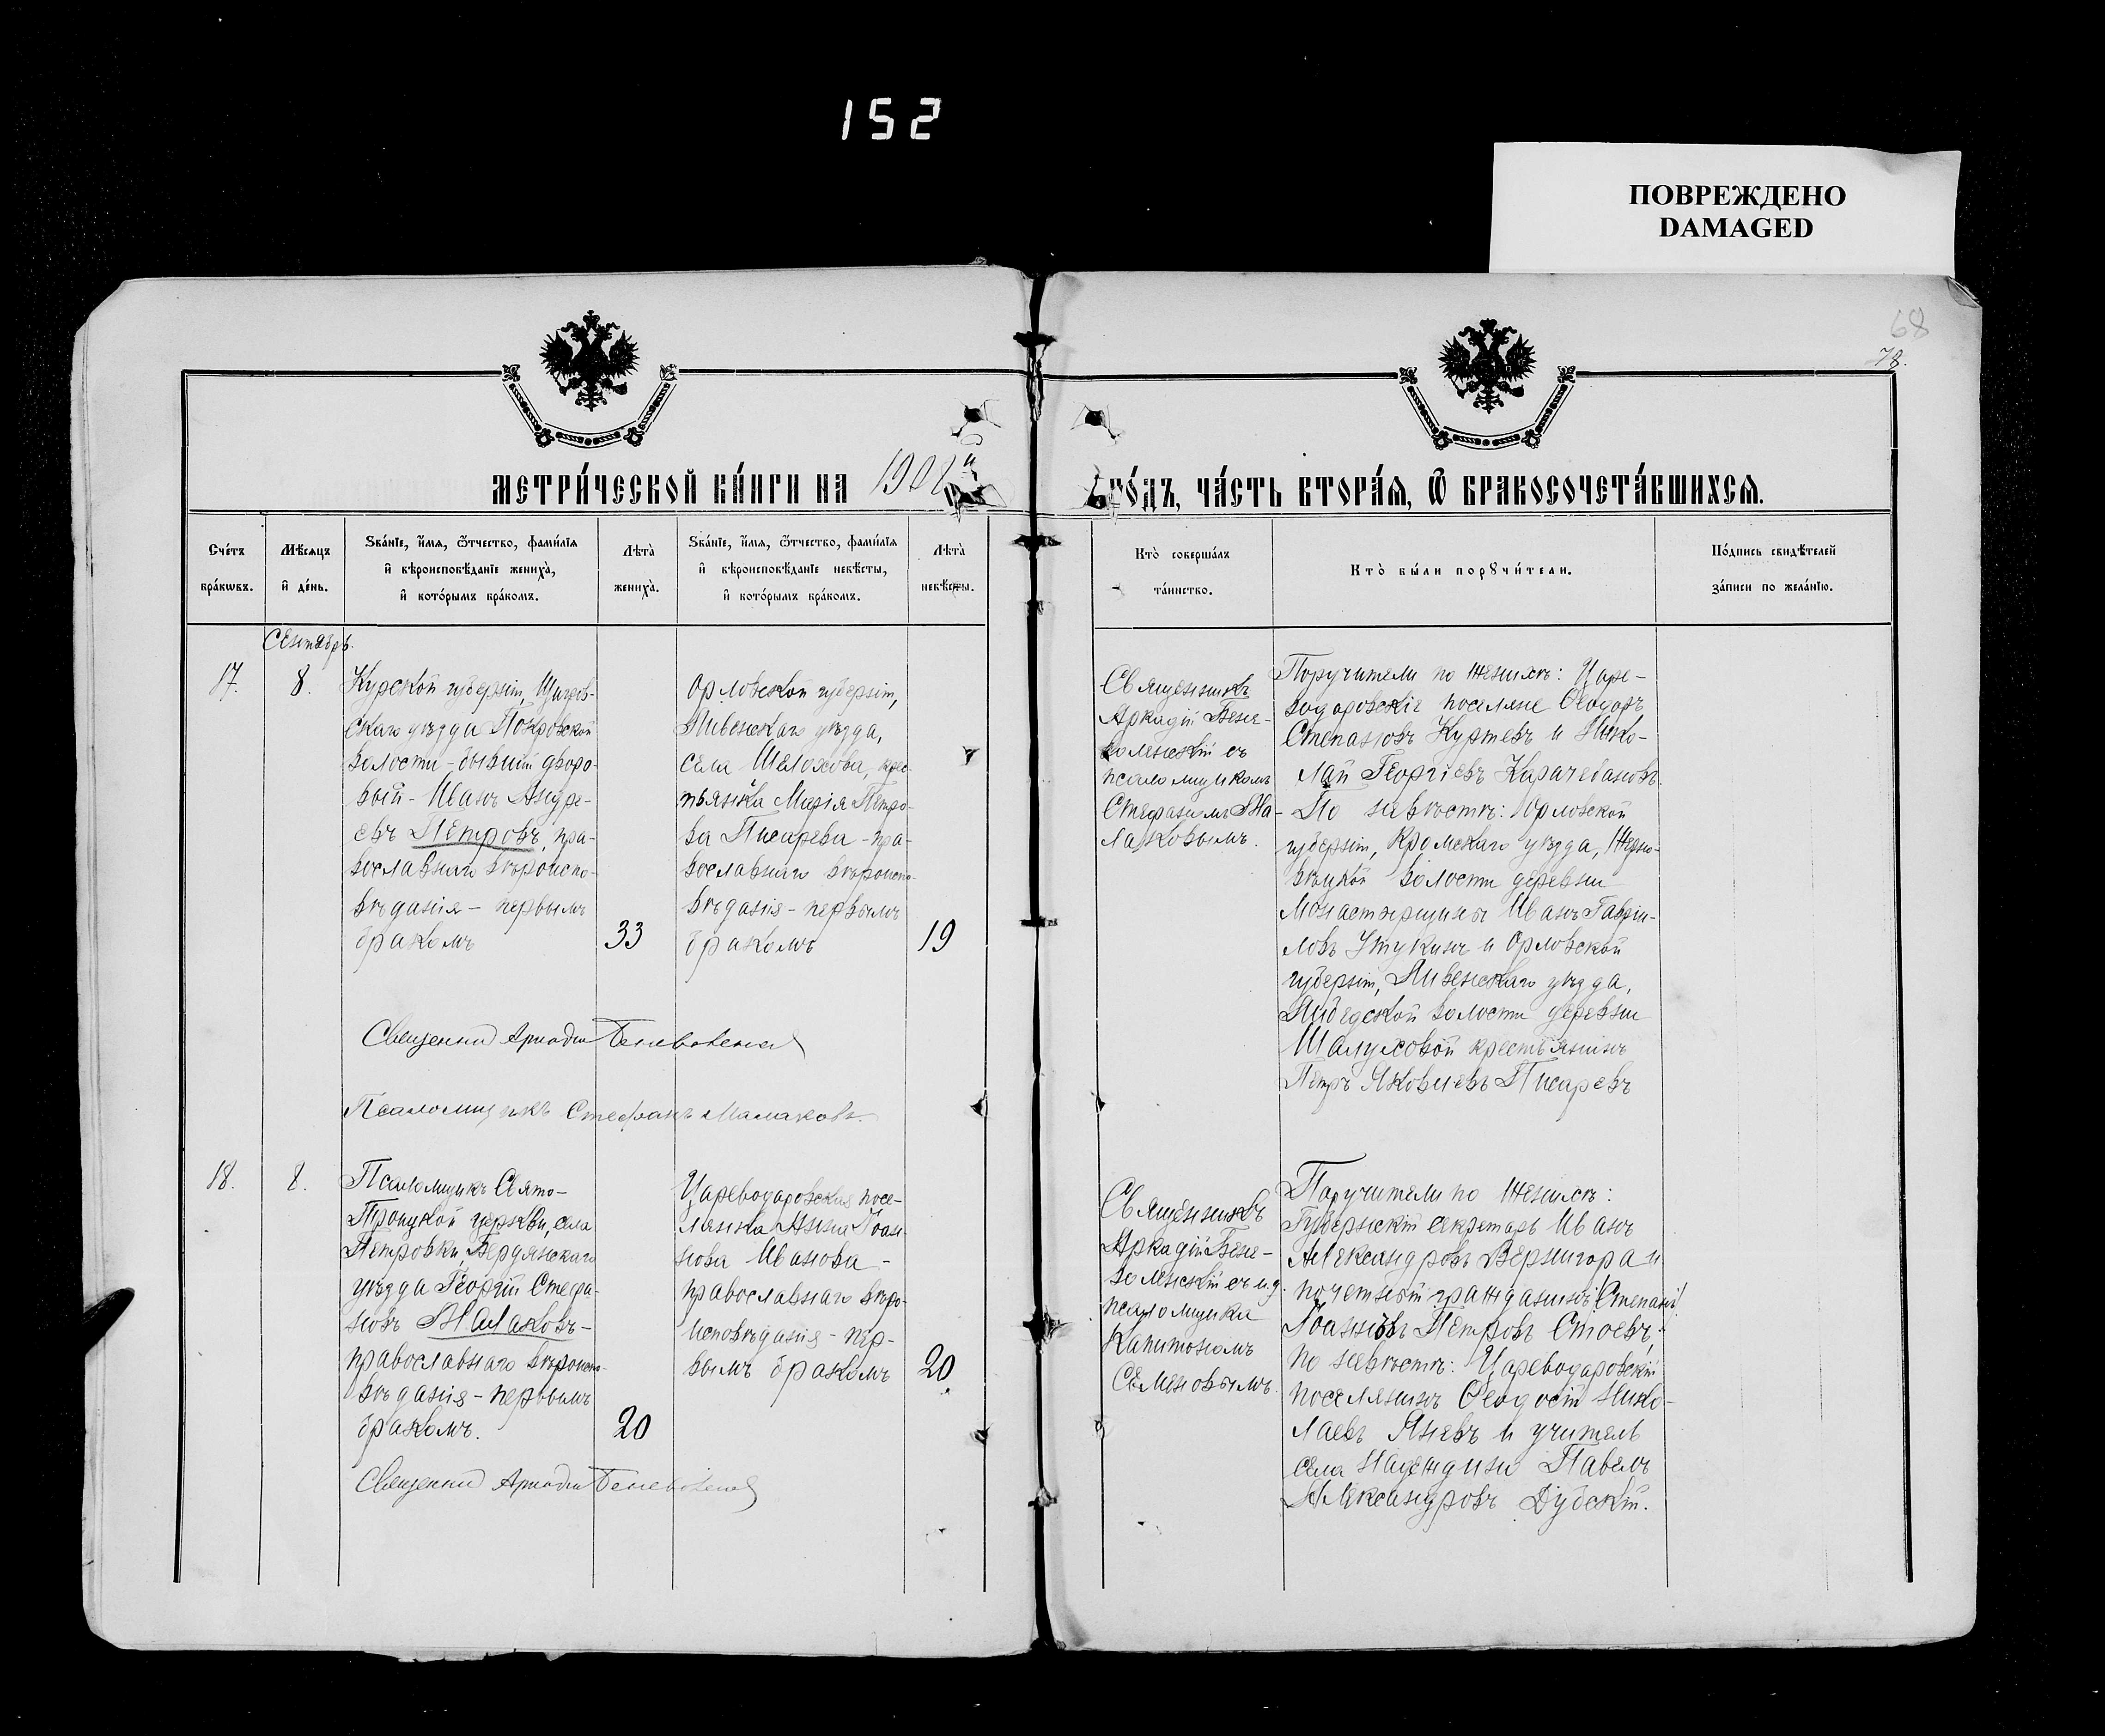 152
ПОВРЕЖДЕНО
DAMAGED
68
78.
МЕТРИ́ЧЕСКОЙ КНИ́ГИ НА 190
ГО́ДЪ, ЧА́СТЬ ВТОРА́Я, Ѿ БРАКОСОЧЕТА́ВШИХСЯ.
Сче́тъ
бра́кѡвъ.
Мѣ́сяцъ
и҆ де́нь.
Ѕва́нїе, и҆́мя, ѻ҆́тчество, фами́лїя
и҆ вѣроисповѣ́данїе жениха̀,
и҆ кото́рымъ бра́комъ.
Лѣ́та̀
жениха̀.
Ѕва́нїе, и҆́мя, ѻ҆́тчество, фами́лїя
и҆ вѣроисповѣ́данїе невѣ́сты,
и҆ кото́рымъ бра́комъ.
Лѣ́та̀
невѣ́сты.
Кто̀ соверша́лъ
та́инство.
Кто̀ бы́ли порꙋчи́тели.
По́дпись свидѣ́телей
за́писи по жела́нїю.
Сентябрь.
17.
8.
Курской губерніи, Щигров-
скаго уѣзда Покровской
волости - бывшій дворо-
вый - Иванъ Андре-
евъ Петровъ, пра-
вославнаго вѣроиспо-
вѣданія - первымъ
бракомъ
33
Орловской губерніи,
Ливенскаго уѣзда,
села Шелохова, крес-
тьянка Марія Петро-
ва Писарева - пра-
вославнаго вѣроиспо-
вѣданія - первымъ
бракомъ
19
Священникъ
Аркадій Бене-
воленскій съ
псаломщикомъ
Стефаномъ Ма-
лаховымъ.
Поручители по женихѣ: Царе-
водаровскіе поселяне Ѳеодоръ
Степановъ Куртевъ и Нико-
лай Георгіевъ Карачебановъ.
По невѣстѣ: Орловской
губерніи, Кромскаго уѣзда,
волости деревни
Монастырщины Иванъ Гаври-
ловъ Утукинъ и Орловской
губерніи, Ливенскаго уѣзда,
волости деревни
Шалуховой крестьянинъ
Петръ Яковлевъ Писаревъ
Священникъ Аркадій Беневоленскій
Псаломщикъ Стефанъ Малаховъ.
18.
8.
Псаломщикъ Свято-
Троицкой церкви, села
Петровки, Бердянскаго
уѣзда Георгій Стефа-
новъ Малаховъ -
православнаго вѣроиспо-
вѣданія - первымъ
бракомъ.
20
Цареводаровская посе-
лянка Анна Іоан-
нова Иванова -
православнаго вѣро-
исповѣданія - пер-
вымъ бракомъ
20
Священникъ
Аркадій Бене-
воленскій съ и.д.
псаломщика
Капитономъ
Семеновымъ.
Поручители по женихѣ:
Губернскій секретарь Иванъ
Александровъ Вернигора и
почетный гражданинъ /Степанъ/
Іоанновъ Петровъ Стоевъ;
по невѣстѣ: Цареводаровскій
поселянинъ Ѳеодосій Нико-
лаевъ Яневъ и учитель
села Надеждины Павелъ
Александровъ Дубскій.
Священникъ Аркадій Беневоленскій